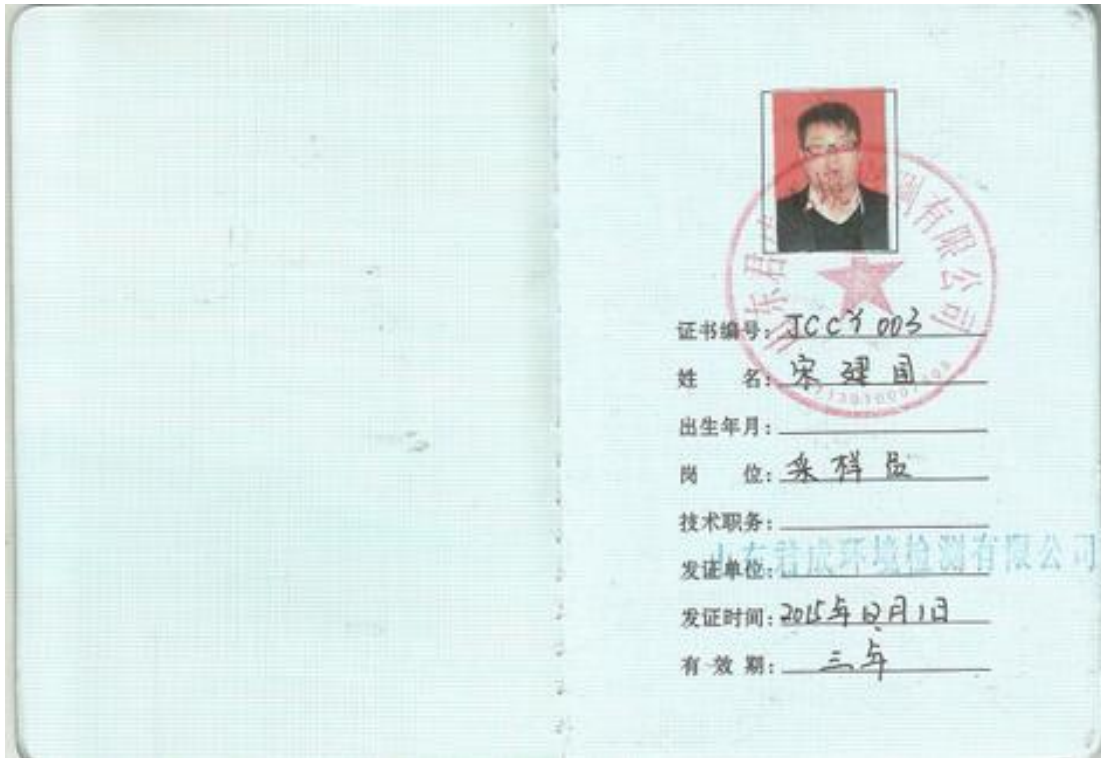 山东君成环境检测有限公司
证书编号: JCCY003
姓 名: 宋建国
出生年月:
岗 位: 采样员
技术职务:
发证单位: 山东君成环境检测有限公司
发证时间: 2015年12月1日
有效期: 三年